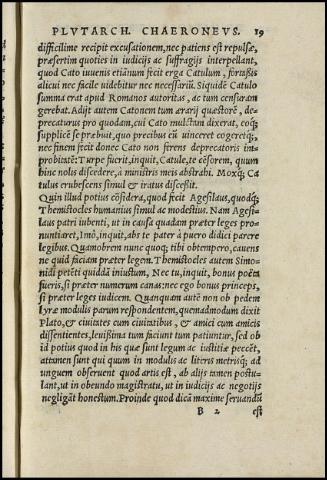 PLVTARCH. CHAERONEVS. 19
difficilime recipit excusationem, nec patiens est repulsæ,
præsertim quoties in iudicijs ac suffragijs interpellant,
quod Cato iuuenis etiānum fecit erga Catulum, formaßis
alicui nec facile uidebitur nec necessariū. Siquidē Catulo
summa erat apud Romanos autoritas, ac tum censuram
gerebat. Adijt autem Catonem tum ærarij quæstorē, de=
precaturus pro quodam, cui Cato mulctam dixerat, coq̃;
supplicē se præbuit, quo precibus eū uinceret cogeretq̃;,
nec finem fecit donec Cato non firens deprecatoris im=
probitatē: Turpe fuerit, inquit, Catule, te cēsorem, quum
hinc nolis discedere, à ministris meis abstrahi. Moxq̃; Ca
tulus erubescens simul & iratus discessit.
Quin illud potius cōsidera, quod fecit Agesilaus, quodq̃;
Themistocles humanius simul ac modestius. Nam Agesi=
laus patri iubenti, ut in causa quadam præter leges pro=
nuntiaret, Imò, inquit, abs te pater à puero didici parere
legibus. Quamobrem nunc quoq; tibi obtempero, cauens
ne quid faciam præter legem. Themistocles autem Simo=
nidi petēti quiddā iniustum, Nec tu, inquit, bonus poëta
fueris, si præter numerum canas: nec ego bonus princeps,
si præter leges iudicem. Quanquam autē non ob pedem
lyræ modulis parum respondentem, quemadmodum dixit
Plato, & ciuitates cum ciuitatibus, & amici cum amicis
dissentientes, leuißima tum faciunt tum patiuntur, sed ob
id potius quod in his quæ sunt legum ac iustitiæ peccēt,
attamen sunt qui quum in modulis ac literis metrisq̃; ad
unguem obseruent quod artis est, ab alijs tamen postu=
lant, ut in obeundo magistratu, ut in iudicijs ac negotijs
negligāt honestum. Proinde quod dicā maxime seruandū
B 2 est